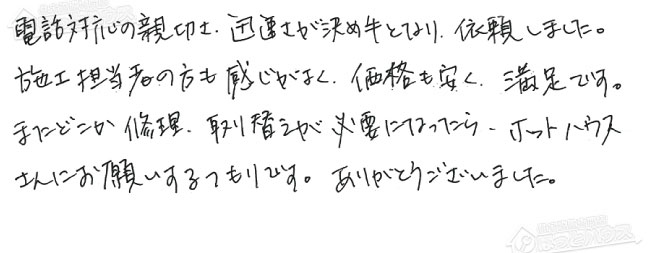 電話対応の親切さ、迅速さが決め手となり、依頼しました。
施工担当者の方も感じがよく、価格も安く、満足です。
またどこか修理、取り替えが必要になったら、ホットハウス
さんにお願いするつもりです。ありがとうございました。